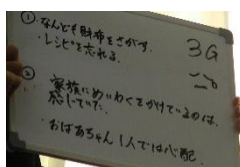 ①
・なんども財布をさがす。
・レシピを忘れる。
3G
②
家族にめいわくをかけているのは、
感じていた。
・おばあちゃん1人では心配。